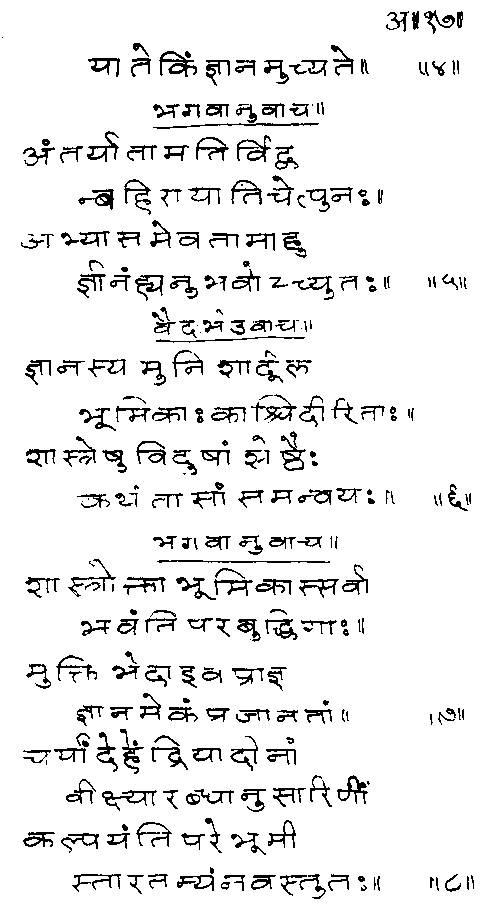 अ॥१७॥
या ते किं ज्ञानमुच्यते॥ ॥४॥
भगवानुवाच॥
अंतर्याता मतिर्विद्व
न्बहिरायाति चेत्पुनः॥
अभ्यासमेव तामाहु
र्ज्ञानंह्यनुभवोऽच्युतः॥ ॥५॥
वैदर्भउवाच॥
ज्ञानस्य मुनिशार्दूल
भूमिकाःकाश्चिदीरिताः॥
शास्त्रेषु विदुषां श्रेष्ठैः
कथं तासां समन्वयः॥ ॥६॥
भगवानुवाच॥
शास्त्रोक्ता भूमिकास्सर्वा
भवंति परबुद्धिगाः॥
मुक्तिभेदाइव प्राज्ञ
ज्ञानमेकं प्रजानतां॥ ॥७॥
चर्यां देहेंद्रियादीनां
वीक्ष्यारब्धानुसारिणीं
कल्पयंति परे भूमी
स्तारतम्यं न वस्तुतः॥ ॥८॥